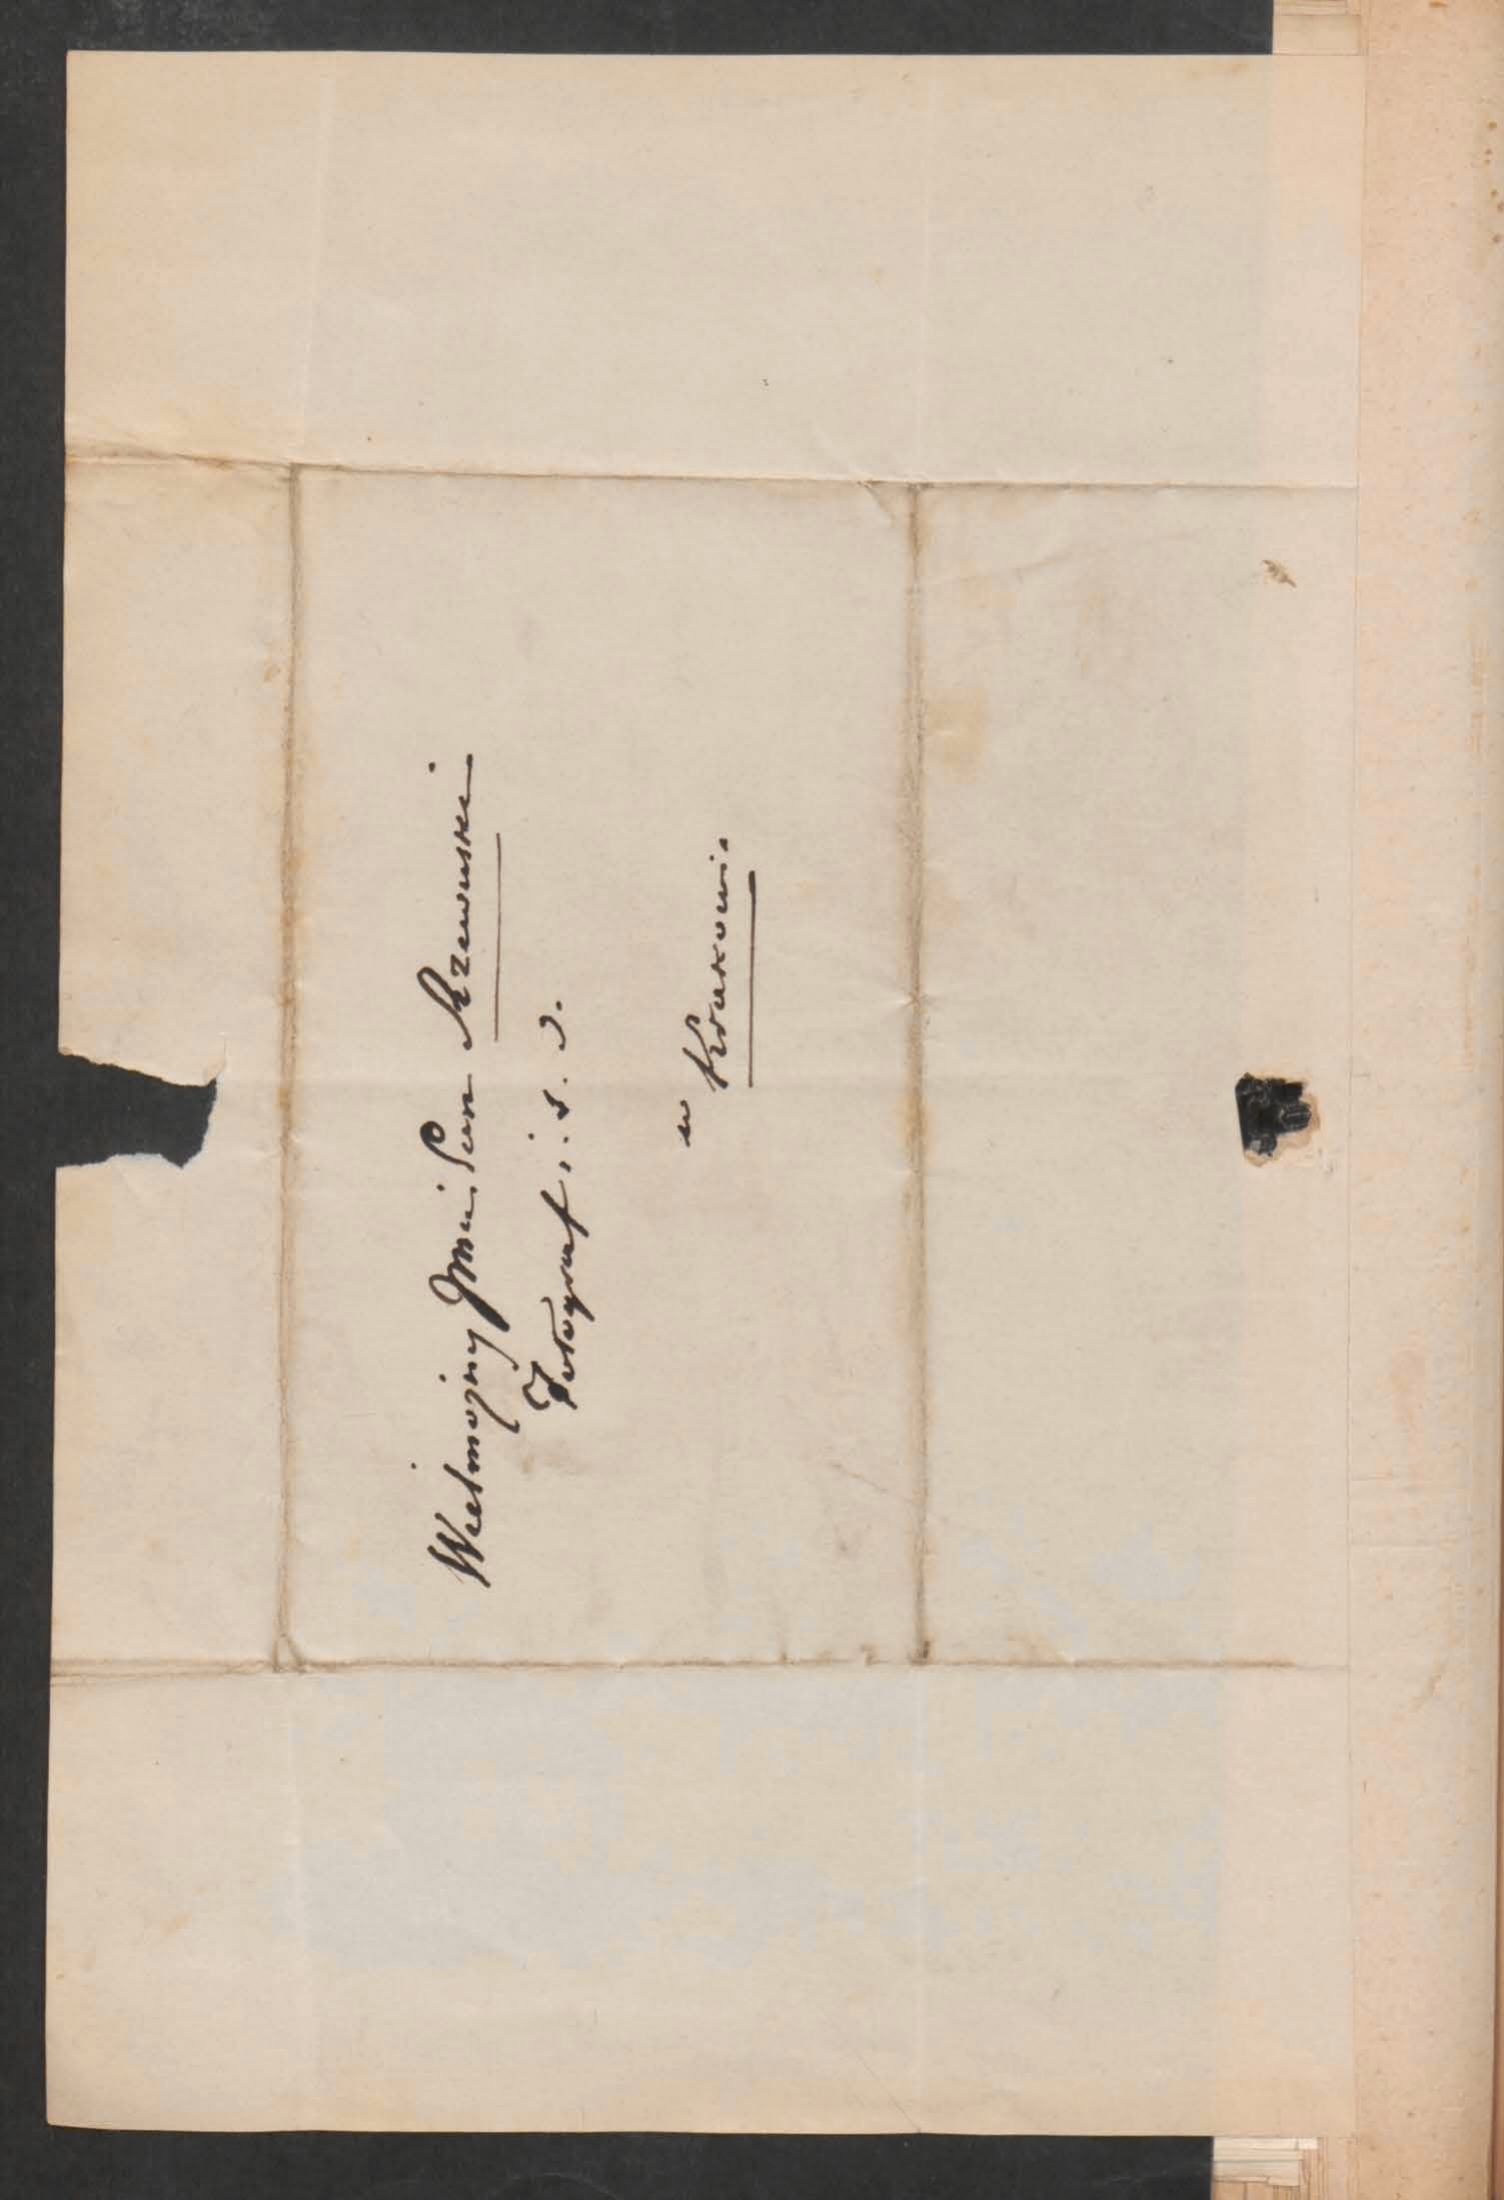 Wielmożny Jmci Pan Rzewuski
Fotograf i. t. d.
w Krakowie